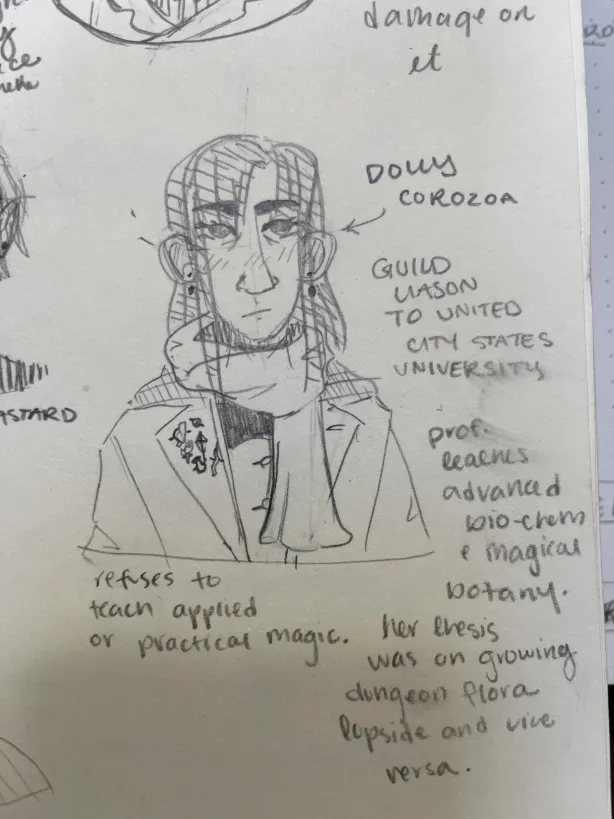 damage on
it
DOLLY
COROZOA
GUILD
LIASON
TO UNITED
CITY STATES
UNIVERSITY
ASTARD
prof.
teaches
advanced
bio-chem
e magical
botany.
refuses to
teach applied
or practical magic.
her thesis
was on growing
dungeon flora
topside and vice
versa.